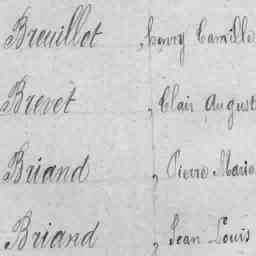 Breuillot , henry Camille
Brevet , Clair August
Briand , Pierre Marie
Briand , Jean Louis